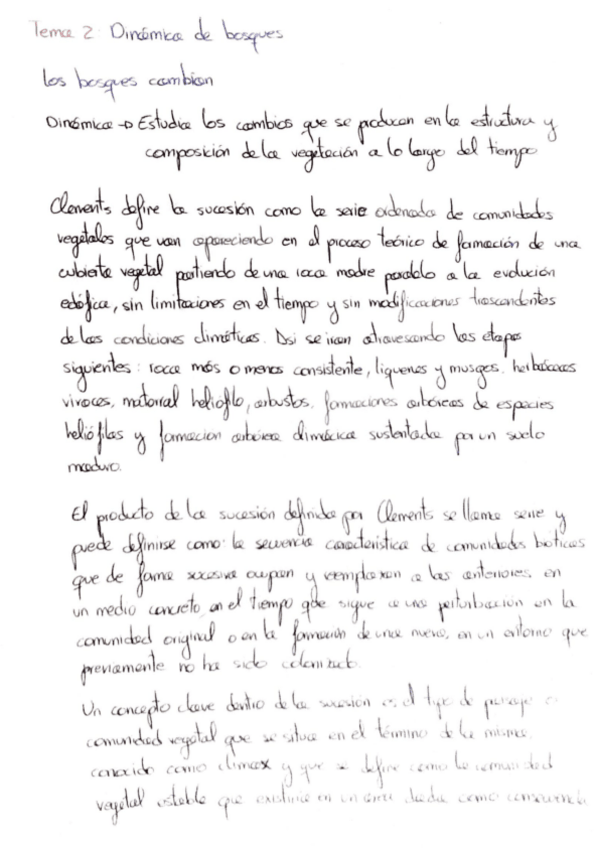 Tema 2: Dinámica de bosques
Los bosques cambian
Dinámica → Estudia los cambios que se producen en la estructura y
composición de la vegetación a lo largo del tiempo
Clements define la sucesión como la serie ordenada de comunidades
vegetales que van apareciendo en el proceso teórico de formación de una
cubierta vegetal partiendo de una roca madre paralelo a la evolución
edáfica, sin limitaciones en el tiempo y sin modificaciones trascendentes
de las condiciones climáticas. Así se irán atravesando las etapas
siguientes: roca más o menos consistente, líquenes y musgos, herbáceas
vivaces, matorral heliófilo, arbustos, formaciones arbóreas de especies
heliófilas y formación arbórea climácica sustentada por un suelo
maduro.
El producto de la sucesión definida por Clements se llama serie y
puede definirse como: la secuencia característica de comunidades bióticas
que de forma sucesiva ocupan y reemplazan a las anteriores, en
un medio concreto, en el tiempo que sigue a una perturbación en la
comunidad original o en la formación de una nueva, en un entorno que
previamente no ha sido colonizado.
Un concepto clave dentro de la sucesión es el tipo de paisaje o
comunidad vegetal que se situa en el término de la misma,
conocido como climax y que se define como la comunidad
vegetal estable que existiría en un área dada como consecuencia